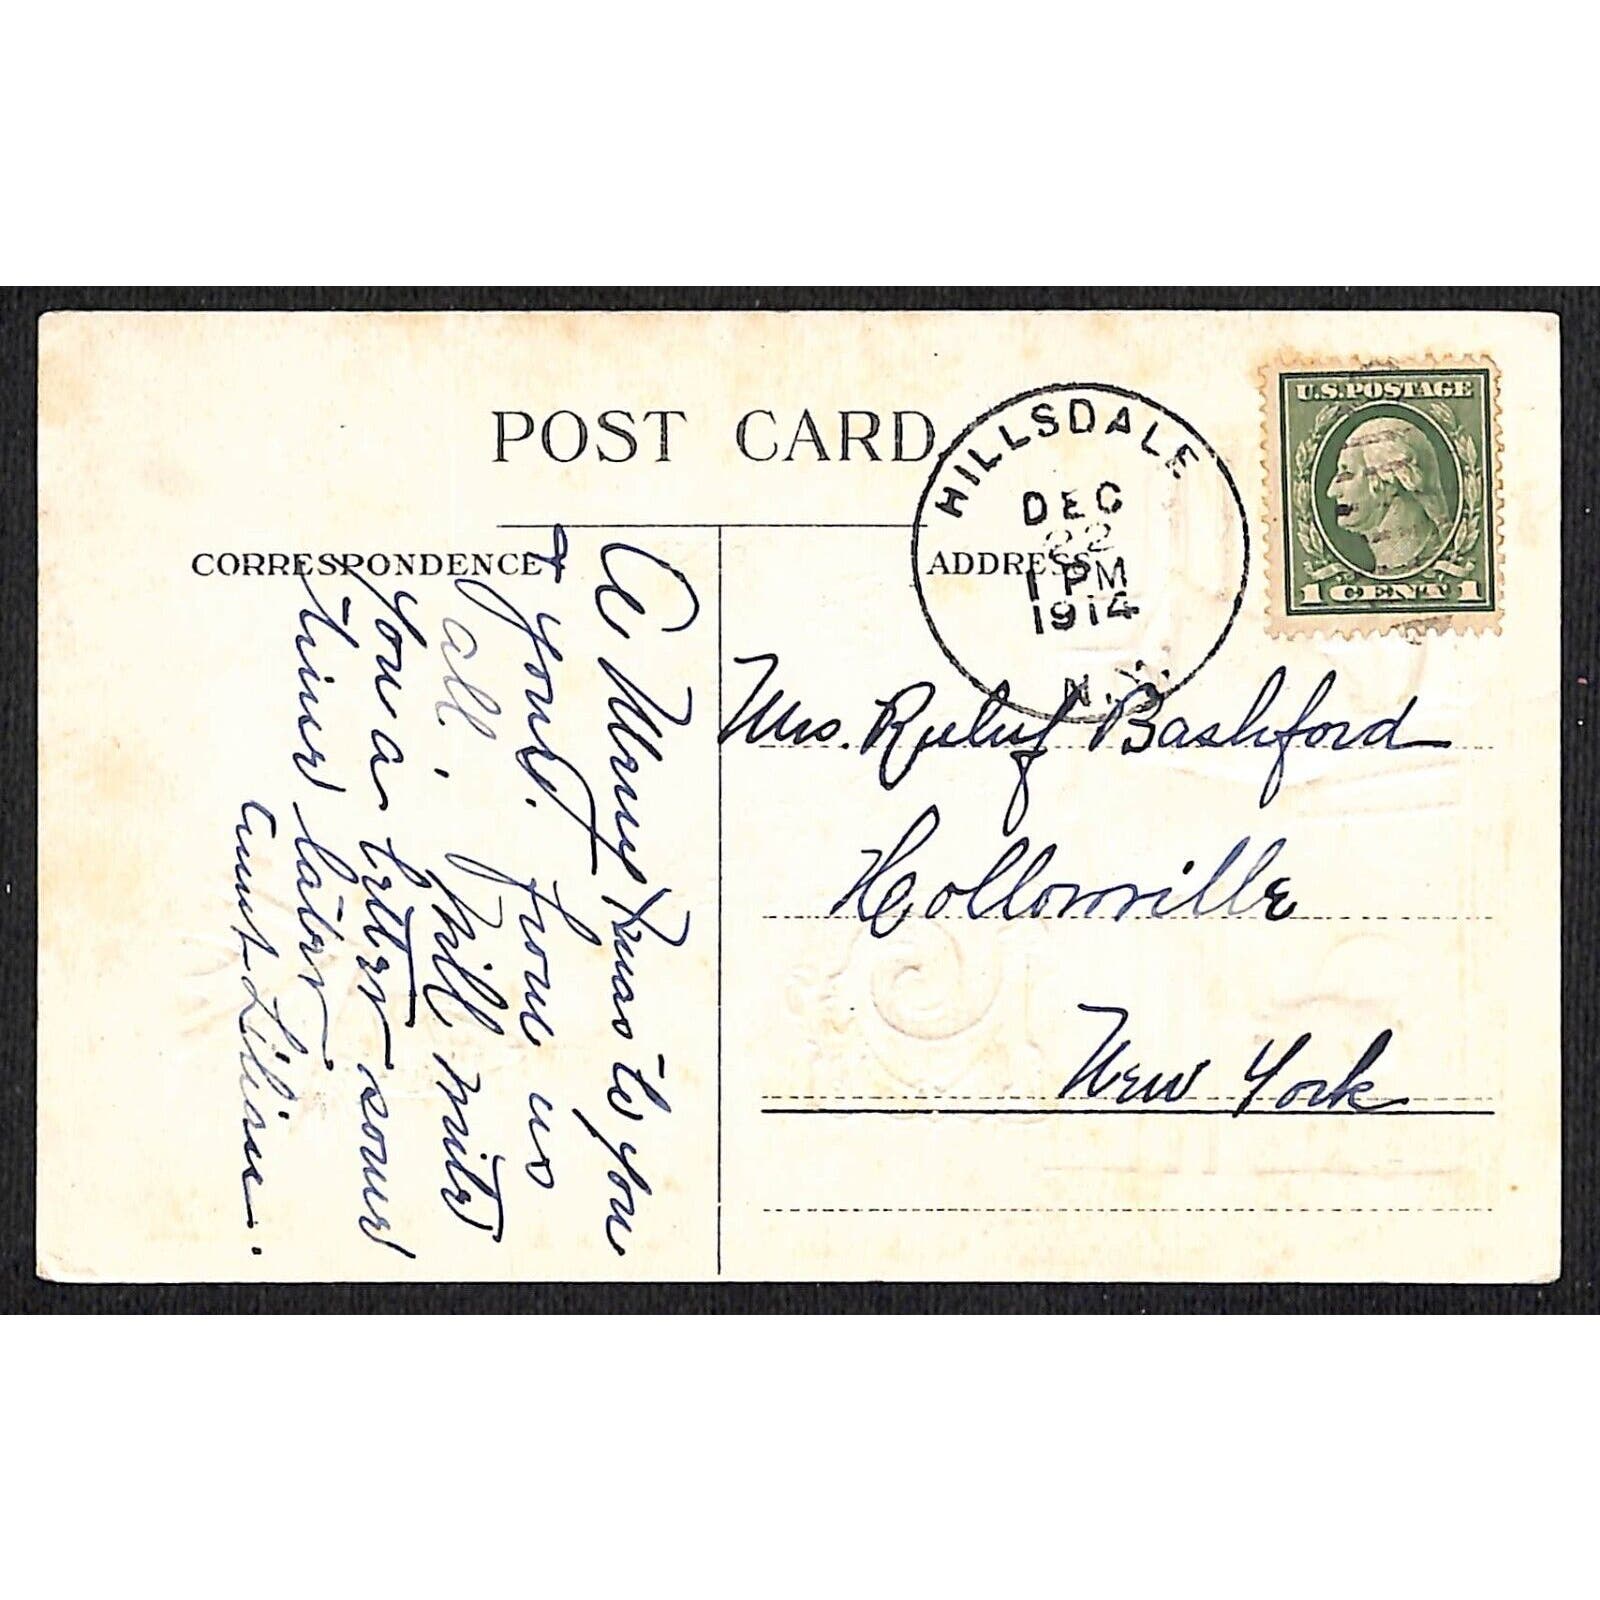 POST CARD
CORRESPONDENCE
ADDRESS
HILLSDALE
DEC
22
1 PM
1914
N.Y.
U.S. POSTAGE
1 CENT 1
A Merry Xmas to you
& yours. from us
all. Will write
you a letter some
time later
Aunt Lilian.
Mrs. Ruluf Bashford
Hollowville
New York